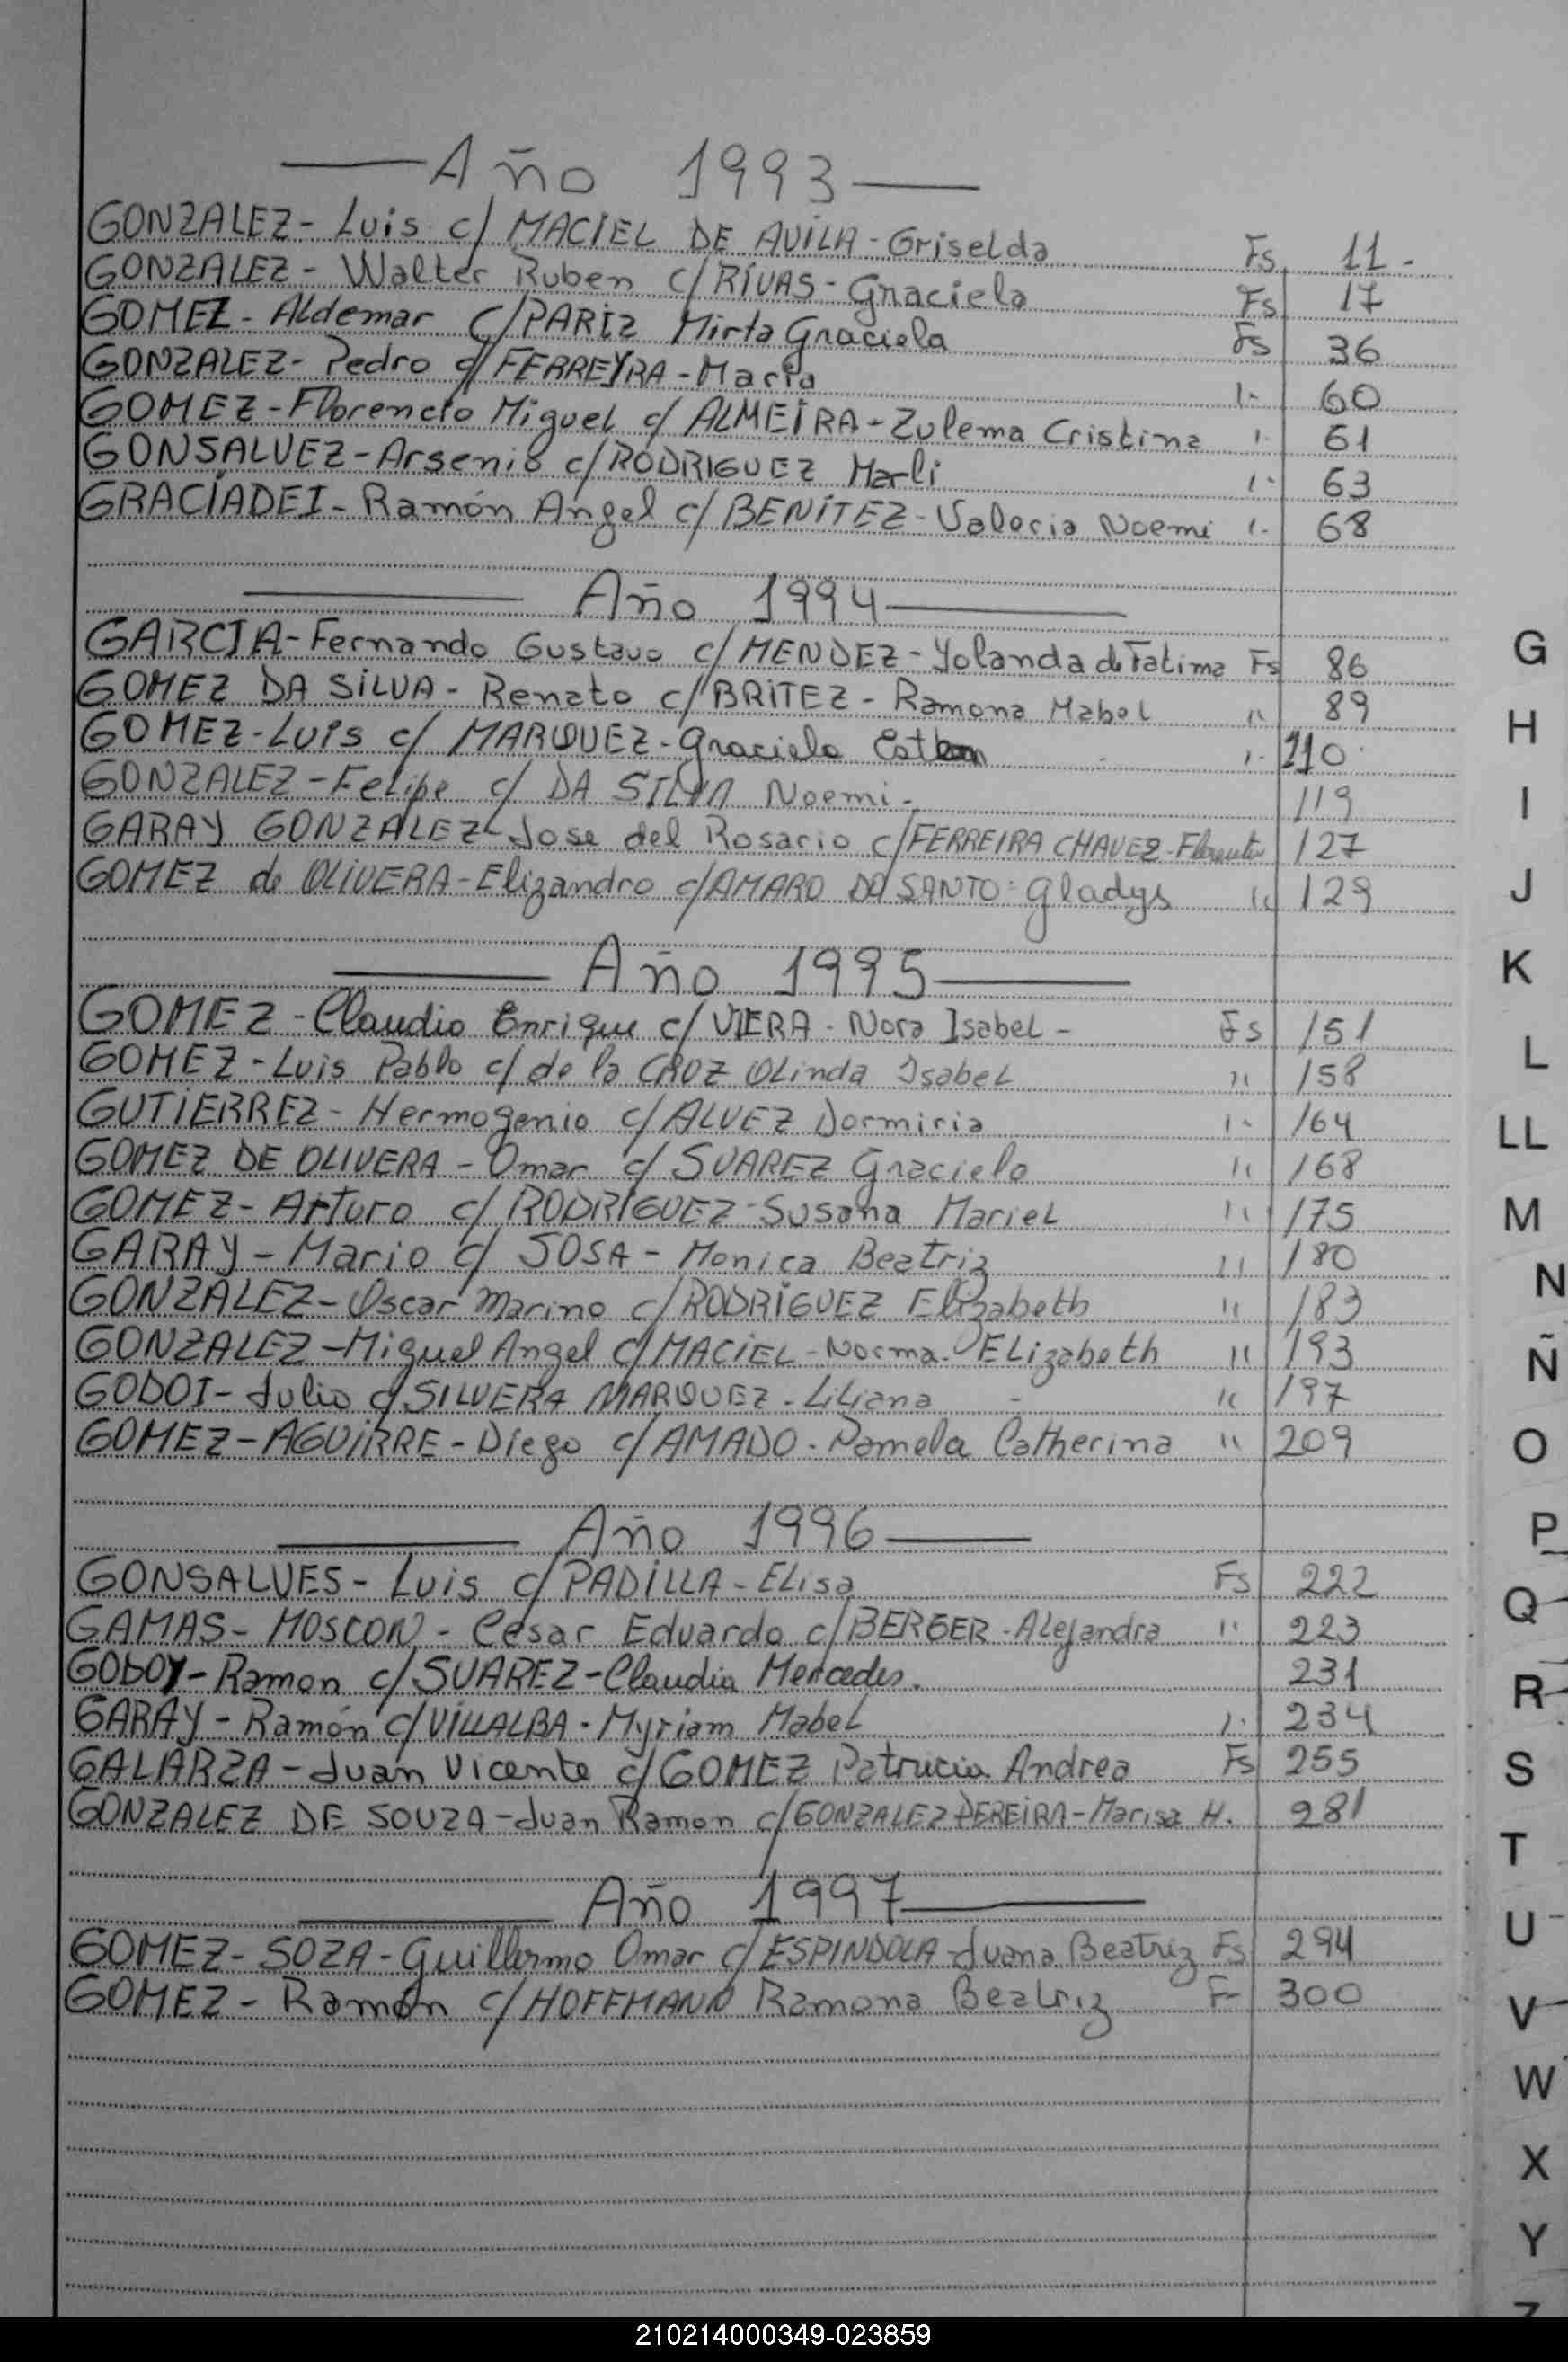 Año 1993
GONZALEZ - Luis c/ MACIEL DE AVILA - Griselda Fs 11 -
GONZALEZ - Walter Ruben c/ RIVAS - Graciela Fs 17
GOMEZ - Aldemar C/ PARIZ Mirta Graciela Fs 36
GONZALEZ - Pedro c/ FERREYRA - Maria 60
GOMEZ - Florencio Miguel c/ ALMEIRA - Zulema Cristina 61
GONSALVEZ - Arsenio c/ RODRIGUEZ Marli 63
GRACÍADEI - Ramón Angel c/ BENÍTEZ - Valeria Noemi 68
Año 1994
GARCIA - Fernando Gustavo c/ MENDEZ - Yolanda de Fatima Fs 86
GOMEZ DA SILVA - Renato c/ BRITEZ - Ramona Mabel " 89
GOMEZ - Luis c/ MARQUEZ - Graciela 110
GONZALEZ - Felipe c/ DA SILVA Noemi - 119
GARAY GONZALEZ - Jose del Rosario c/ FERREIRA CHAVEZ - 127
GOMEZ de OLIVERA - Elizandro c/ AMARO DA SANTO - Gladys " 129
Año 1995
GOMEZ - Claudio Enrique c/ VIERA - Nora Isabel - Fs 151
GOMEZ - Luis Pablo c/ de la CRUZ Olinda Isabel " 158
GUTIERREZ - Hermogenio c/ ALVEZ Dormiria " 164
GOMEZ DE OLIVERA - Omar c/ SUAREZ Graciela " 168
GOMEZ - Arturo c/ RODRIGUEZ - Susana Mariel " 175
GARAY - Mario c/ SOSA - Monica Beatriz " 180
GONZÁLEZ - Oscar Marino c/ RODRÍGUEZ Elizabeth " 183
GONZALEZ - Miguel Angel c/ MACIEL - Norma - Elizabeth " 193
GODOI - Julio c/ SILVERA MARQUEZ - Liliana " 197
GOMEZ - AGUIRRE - Diego c/ AMADO - Pamela Catherina " 209
Año 1996
GONSALVES - Luis c/ PADILLA - Elisa Fs 222
GAMAS - MOSCON - César Eduardo c/ BERGER - Alejandra " 223
GODOY - Ramon c/ SUAREZ - Claudia Mercedes. 231
GARAY - Ramón c/ VILLALBA - Myriam Mabel " 234
GALARZA - Juan Vicente c/ GOMEZ Patrucia Andrea Fs 255
GONZALEZ DE SOUZA - Juan Ramon c/ GONZALEZ PEREIRA - Marisa H. 281
Año 1997
GOMEZ - SOZA - Guillermo Omar c/ ESPINDOLA - Juana Beatriz Fs 294
GOMEZ - Ramón c/ HOFFMANN Ramona Beatriz F 300
G
H
I
J
K
L
LL
M
N
Ñ
O
P
Q
R
S
T
U
V
W
X
Y
Z
210214000349-023859